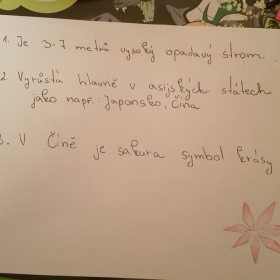 1. Je 3-7 metrů vysoký opadavý strom.
2. Vyrůstá hlavně v asijských státech
jako např.: Japonsko, Čína
3. V Číně je sakura symbol krásy